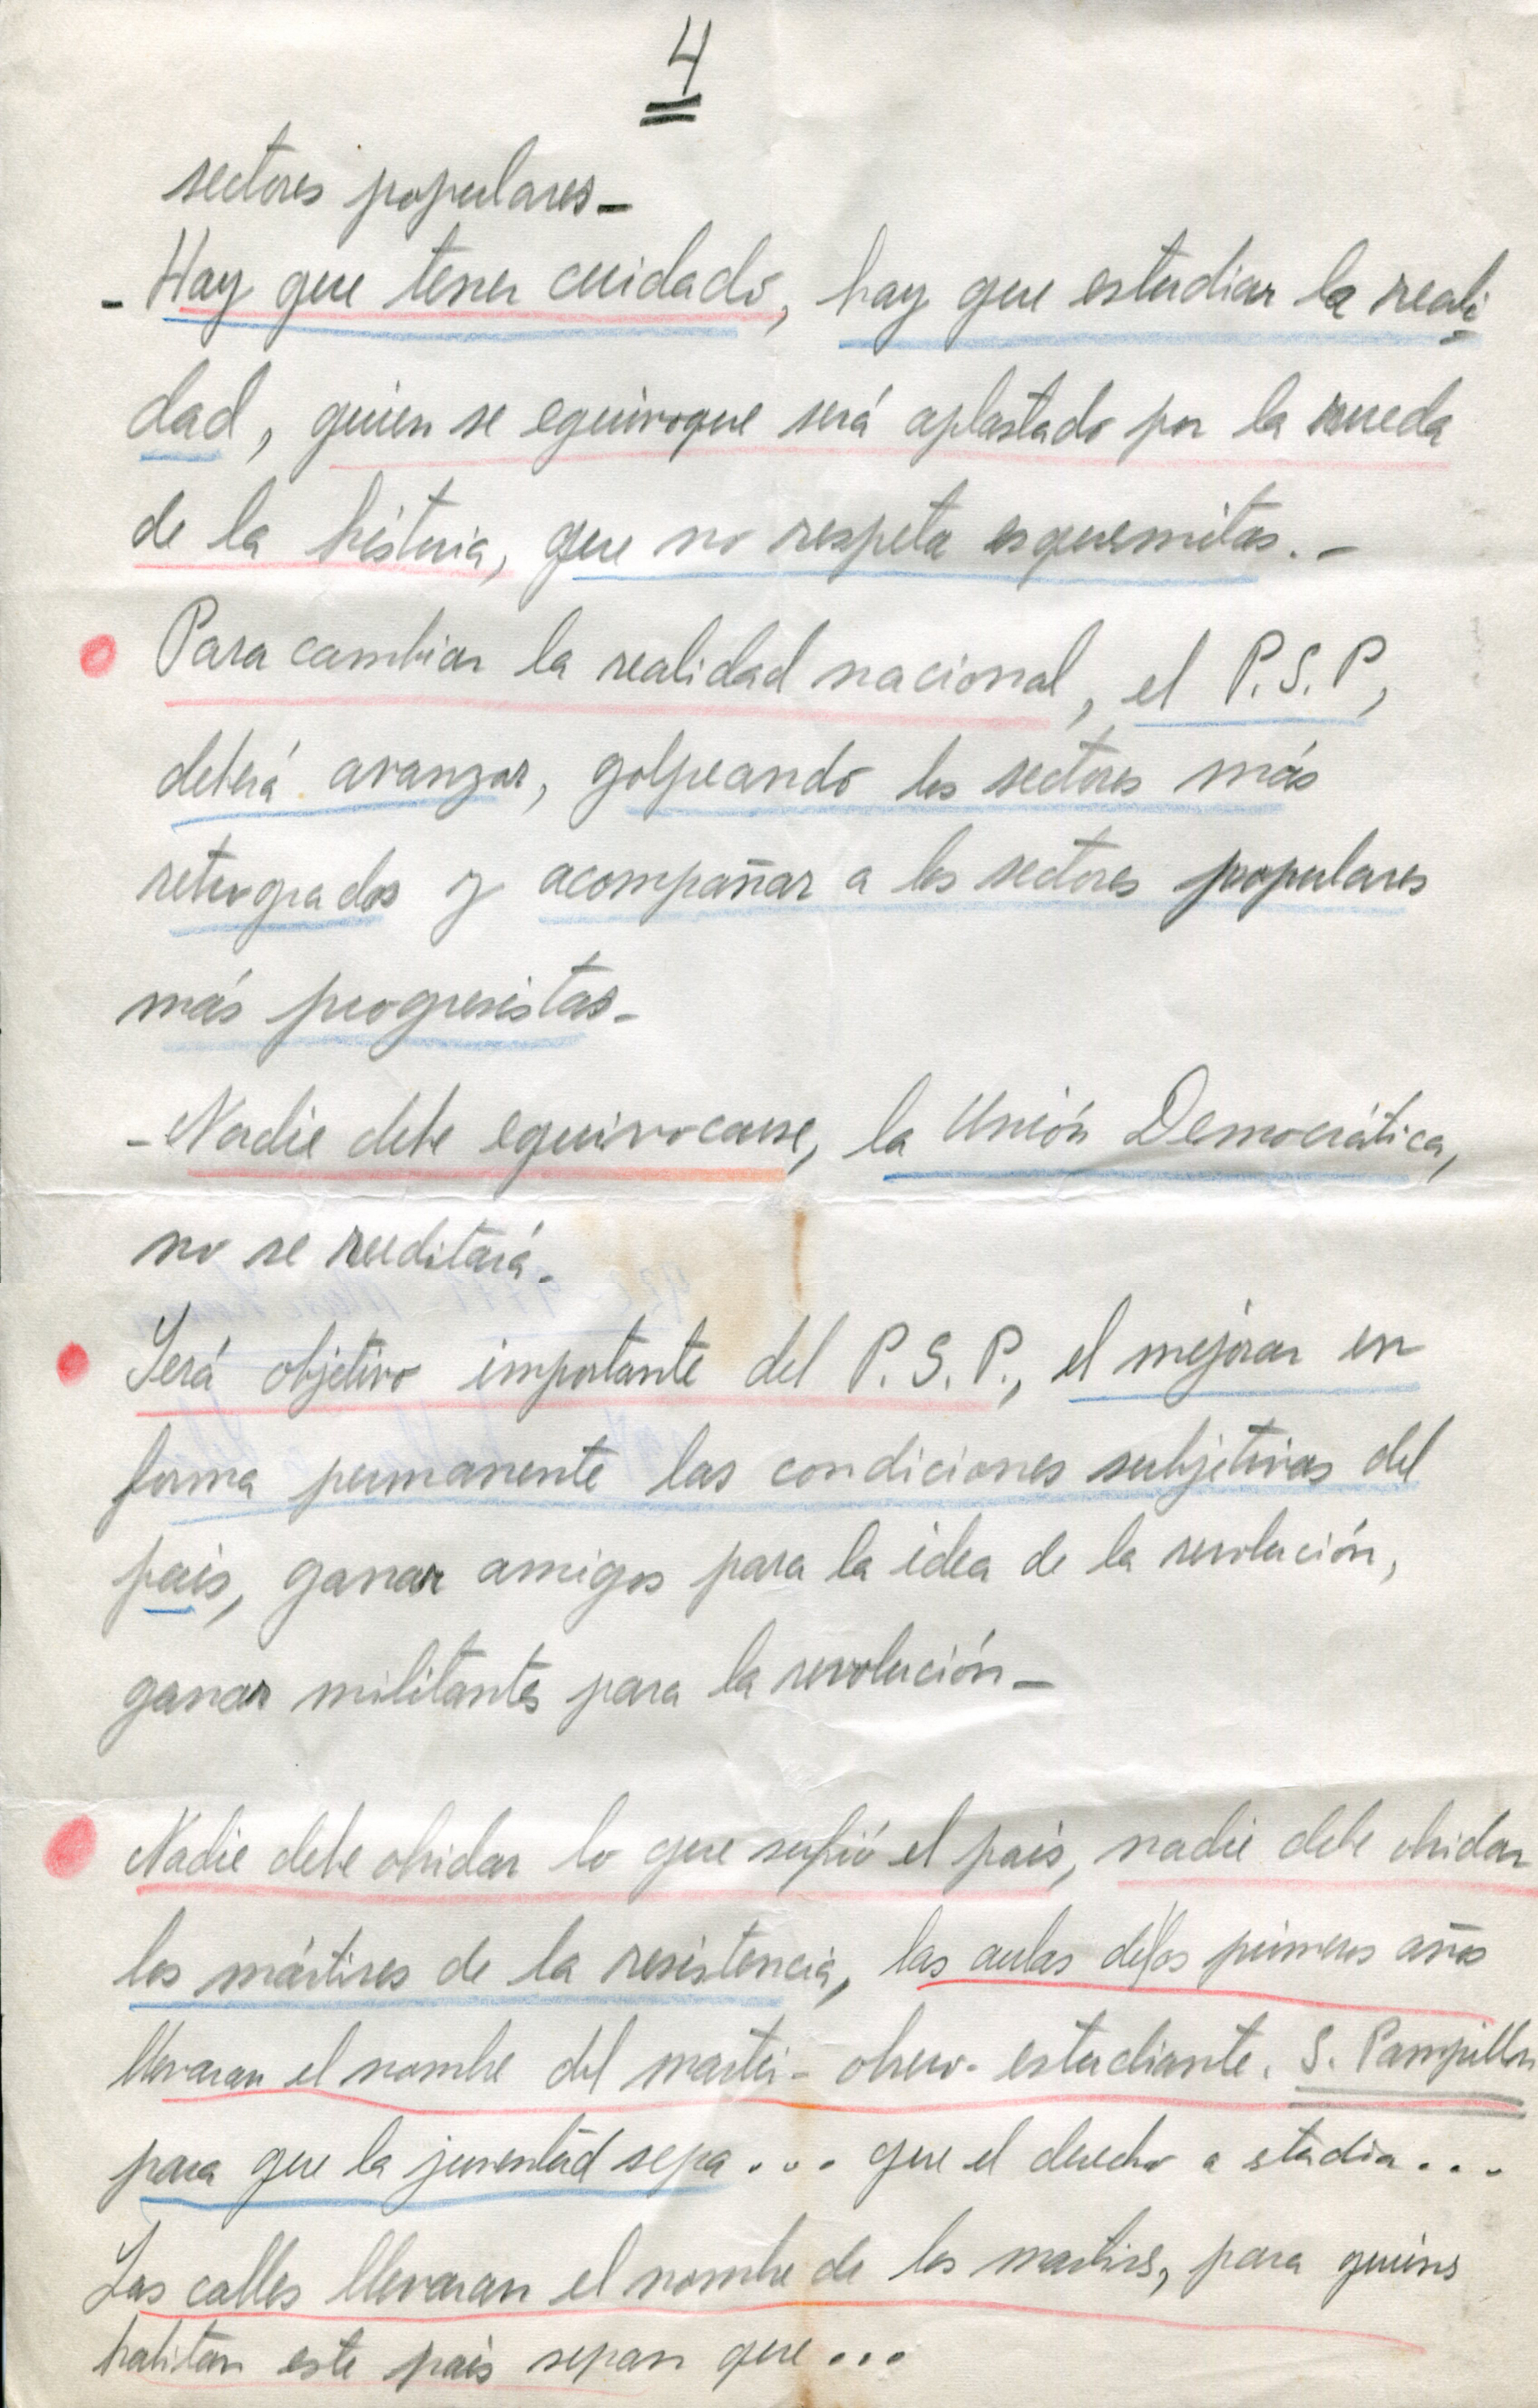 4
sectores populares_
- Hay que tener cuidado, hay que estudiar la reali
dad, quien se equivoque será aplastado por la rueda
de la historia, que no respeta esquemitas. -
Para cambiar la realidad nacional, el P.S.P,
deberá avanzar, golpeando los sectores más
retrogrados y acompañar a los sectores populares
más progresistas_
- Nadie debe equivocarse, la Unión Democrática,
no se reeditará_
Será objetivo importante del P.S.P., el mejorar en
forma permanente las condiciones subjetivas del
pais, ganar amigos para la idea de la revolución,
ganar militantes para la revolución_
Nadie debe olvidar lo que sufrió el pais, nadie debe olvidar
los mártires de la resistencia, las aulas de los primeros años
llevaran el nombre del martir - obrero - estudiante. S. Pampillon
para que la juventud sepa... que el derecho a stadia...
Las calles llevaran el nombre de los martirs, para quiens
habitan este pais sepan que...